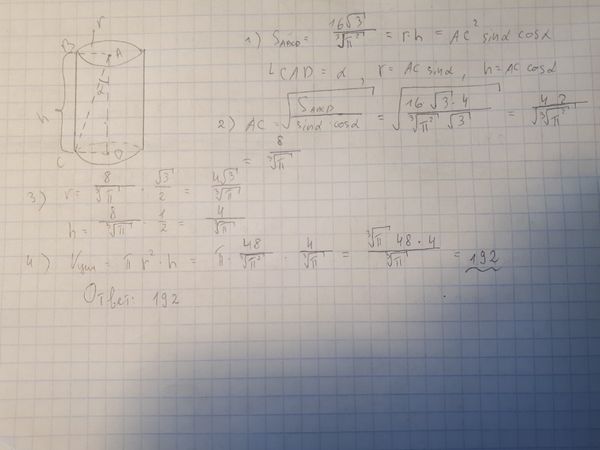 r
B
A
α
h
C
D
1) S_ABCD = 16√3 / ∛π² = r h = AC² sinα cosα
∠CAD = α , r = AC sinα , h = AC cosα
2) AC = √(S_ABCD / (sinα · cosα)) = √(16 √3 · 4 / (∛π² √3)) = 4 · 2 / √(∛π²)
= 8 / ∛π
3) r = 8 / ∛π · √3 / 2 = 4√3 / ∛π
h = 8 / ∛π · 1 / 2 = 4 / ∛π
4) Vцил = π r² · h = π · 48 / ∛π² · 4 / ∛π =
= 192
Ответ: 192